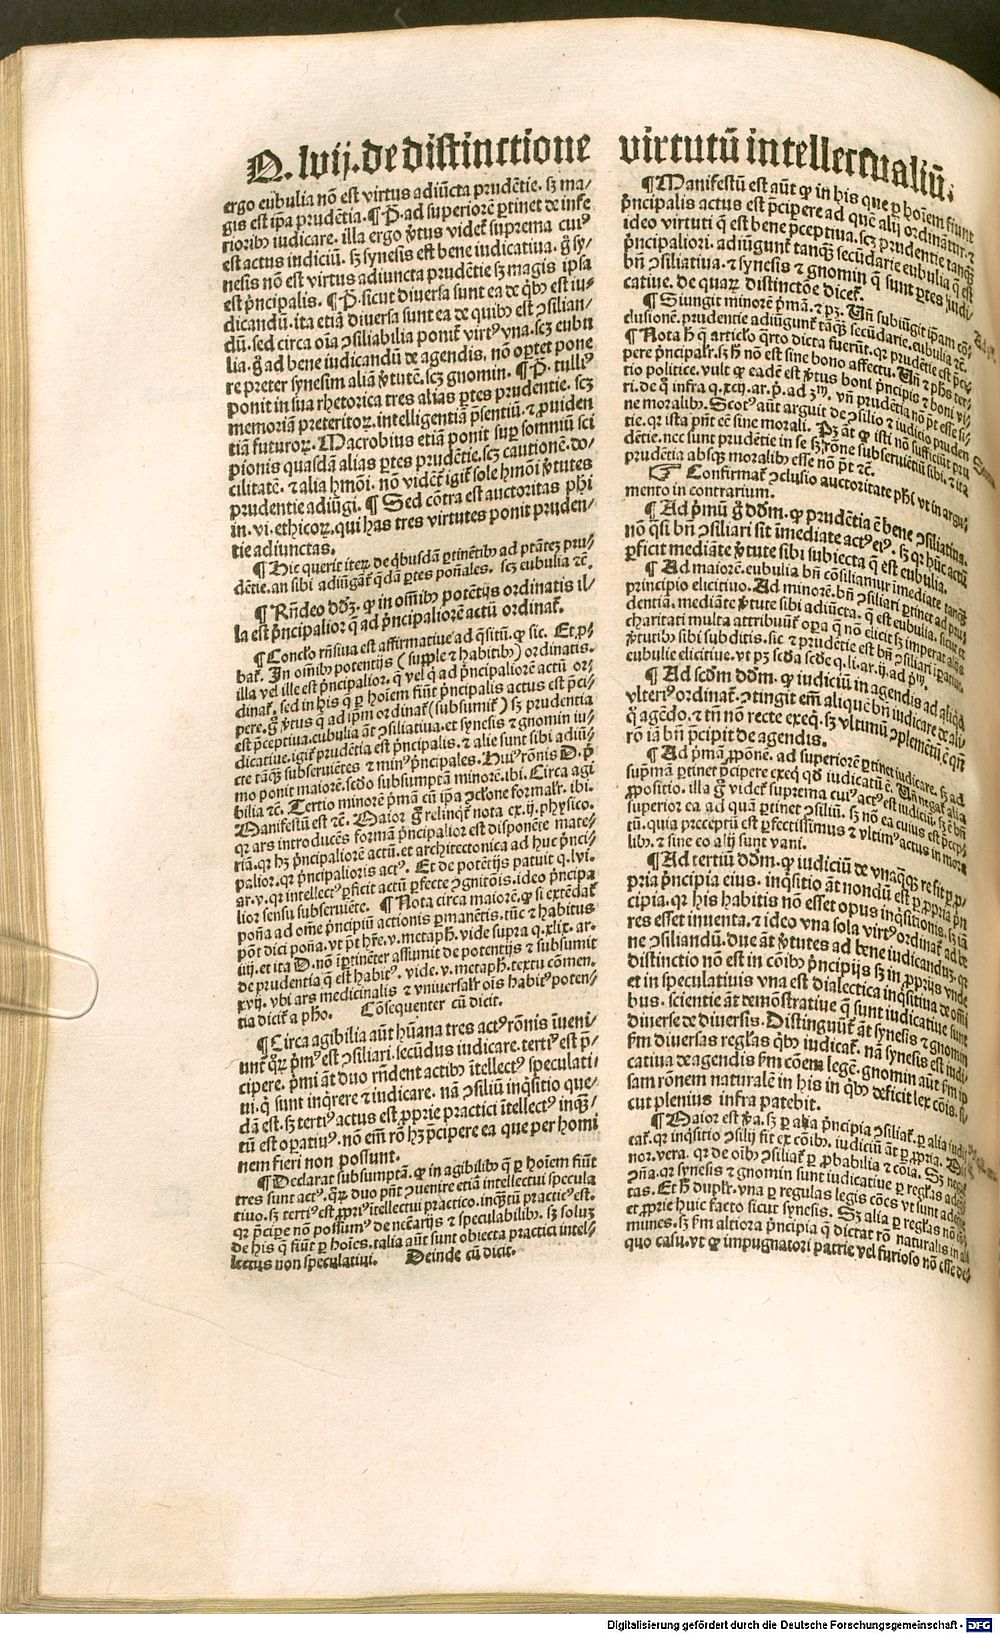 Q. lvij. de distinctione virtutū intellectualiū.
ergo eubulia nō est virtus adiūcta prudētie. sꝫ ma⸗
gis est ip̄a prudētia. ¶ P̄. ad superiorē ꝑtinet de infe
riorib⁹ iudicare. illa ergo v̓tus videt᷑ suprema cui⁹
est actus iudiciū. sꝫ synesis est bene iudicatiua. g̊ sy⸗
nesis nō est virtus adiuncta prudētie sꝫ magis ipsa
est p̓ncipalis. ¶ P̄. sicut diuersa sunt ea de q̇b⁹ est iu⸗
dicandū. ita etiā diuersa sunt ea de quib⁹ est ꝯsilian⸗
dū. sed circa oīa ꝯsiliabilia ponit᷑ virt⁹ vna. scꝫ eubu
lia. g̊ ad bene iudicandū de agendis. nō oꝑtet pone
re preter synesim aliā v̓tutē. scꝫ gnomin. ¶ P̄. tulli⁹
ponit in sua rhetorica tres alias ꝑtes prudentie. scꝫ
memoriā preteritoꝝ. intelligentiā p̄sentiū. ⁊ ꝓuiden
tiā futuroꝝ. Macrobius etiā ponit suꝑ somniū sci
pionis quasdā alias ꝑtes prudētie. scꝫ cautionē. do⸗
cilitatē. ⁊ alia hmōi. nō vident᷑ igit᷑ sole hmōi v̓tutes
prudentie adiūgi. ¶ Sed cōtra est auctoritas phi
in. vi. ethicoꝝ. qui has tres virtutes ponit pruden⸗
tie adiunctas.
¶ Hic querit iteꝝ de q̇busdā ꝑtinētib⁹ ad ptātes pru⸗
dētie. an sibi adiūgāt᷑ q̄dā ꝑtes poñales. scꝫ eubulia ⁊c̄.
¶ Rn̄deo dd̄ꝫ. ꝙ in oīb⁹ potētijs ordinatis il⸗
la est p̓ncipalior q̄ ad p̓ncipaliorē actū ordinat᷑.
¶ Conclo rn̄siua est affirmatiue ad q̄sitū. ꝙ sic. Et ꝓ⸗
bat᷑. In oīb⁹ potentijs (supple ⁊ habitib⁹) ordinatis.
illa vel ille est p̓ncipalior. q̄ vel q̇ ad p̓ncipaliorē actū or⸗
dinat᷑. sed in his q̄ ꝑ hoīem fiūt p̓ncipalis actus est p̄ci⸗
pere. g̊ v̓tus q̄ ad ip̄m ordinat᷑ (subsumit᷑) sꝫ prudentia
est p̄ceptiua. eubulia āt ꝯsiliatiua. et synesis ⁊ gnomin iu⸗
dicatiue. igit᷑ prudētia est p̓ncipalis. ⁊ alie sunt sibi adiū⸗
cte tāqꝫ subseruiētes ⁊ min⁹ p̓ncipales. Hui⁹ rōnis D. p̄⸗
mo ponit maiorē. scd̄o subsumptam minorē. ibi. Circa agi
bilia ⁊c̄. Tertio minorē p̓mā cū ip̄a ꝯclone formalr̄. ibi.
Manifestū est ⁊c̄. Maior g̊ relinqt᷑ nota ex. ij. physico.
qꝛ ars introducēs formā p̓ncipalior est disponēte mate⸗
riā. qꝛ hꝫ p̓ncipaliorē actū. et architectonica ad huc p̓nci⸗
palior. qꝛ p̓ncipalioris act⁹. Et de potētijs patuit q. lvi.
ar. v. qꝛ intellect⁹ ꝑficit actū ꝑfecte ꝯgnitōis. ideo p̓ncipa
lior sensu subseruiēte. ¶ Nota circa maiorē. ꝙ si extēdat᷑
poñā ad omē p̓ncipiū actionis ꝑmanētis. tūc ⁊ habitus
pōt dici poñā. vt p̄t hr̄e. v. metaph̄. vide supra q. xlix. ar.
iiij. et ita D. nō īꝑtinēter assumit de potentijs ⁊ subsumit
de prudentia q̄ est habit⁹. vide. v. metaph̄. textu cōmen.
xvij. vbi ars medicinalis ⁊ vniuersalr̄ oīs habit⁹ poten⸗
tia dicit᷑ a ph̄o. Cōsequenter cū dicit.
¶ Circa agibilia aūt hūana tres act⁹ rōnis īueni⸗
unt᷑. q̊ꝝ p̓m⁹ est ꝯsiliari. secūdus iudicare. terti⁹ est p̄⸗
cipere. p̓mi āt duo rn̄dent actib⁹ ītellect⁹ speculati⸗
ui. q̄ sunt inq̇rere ⁊ iudicare. nā ꝯsiliū inq̇sitio que⸗
dā est. sꝫ terti⁹ actus est ꝓprie practici ītellect⁹ inqꝫ⸗
tū est oꝑatiu⁹. nō em̄ rō hꝫ p̄cipere ea que per homi
nem fieri non possunt.
¶ Declarat subsumptā. ꝙ in agibilib⁹ q̄ ꝑ hoīem fiūt
tres sunt act⁹. q̊ꝝ duo pn̄t ꝯuenire etiā intellectui specula
tiuo. sꝫ terti⁹ est ꝓpri⁹ ītellectui practico. inqꝫtū practic⁹ est.
qꝛ p̄cipere nō possum⁹ de nec̄arijs ⁊ speculabilib⁹. sꝫ soluꝫ
de his q̄ fiūt ꝑ hoīes. talia aūt sunt obiecta practici intel⸗
lectus non speculatiui. Deinde cū dicit.
¶ Manifestū est aūt ꝙ in his que ꝑ hoīem fiunt
p̓ncipalis actus est p̄cipere ad quē alij ordinātur. ⁊
ideo virtuti q̄ est bene p̄ceptiua. scꝫ prudentie tanqꝫ
p̓ncipaliori. adiūgunt᷑ tanqꝫ secūdarie eubulia q̄ est
bn̄ ꝯsiliatiua. ⁊ synesis ⁊ gnomin q̄ sunt ꝑtes iudi⸗
catiue. de quaꝝ distinctōe dicet᷑.
¶ Siungit minorē p̓mā. ⁊ pꝫ. Vn̄ subiūgit ip̄am cō⸗
clusionē. prudentie adiūgunt᷑ tāqꝫ secūdarie. eubulia ⁊c̄.
¶ Nota h̄ q̄ articlo q̊rto dicta fuerūt. qꝛ prudētie est p̄ci⸗
pere p̓ncipalr̄. sꝫ h̄ nō est sine bono affectu. Vn̄ ⁊ phs ter⸗
tio politice. vult ꝙ eadē est v̓tus boni p̓ncipis ⁊ boni vi⸗
ri. de q̊ infra q. xcij. ar. p̄. ad 3ᵐ. vn̄ prudētia nō pt̄ esse si⸗
ne moralib⁹. Scot⁹ aūt arguit de ꝯsilio ⁊ iudicio pruden
tie. qꝛ ista pn̄t eē sine morali. Pꝫ āt ꝙ isti nō sufficiūt pru
dētie. nec sunt prudētie in se sꝫ rōne subseruiētiū sibi. ⁊ ita
prudētia absqꝫ moralib⁹ esse nō p̄t ⁊c̄.
☞ Confirmat᷑ ꝯclusio auctoritate phi vt in argu⸗
mento in contrarium.
¶ Ad p̓mū g̊ dd̄m. ꝙ prudētia ē bene ꝯsiliatiua.
nō q̄si bn̄ ꝯsiliari sit īmediate act⁹ ei⁹. sꝫ qꝛ hūc actū
ꝑficit mediāte v̓tute sibi subiecta q̄ est eubulia.
¶ Ad maiorē. eubulia bn̄ cōsiliamur īmediate tanqꝫ
principio elicitiuo. Ad minorē. bn̄ ꝯsiliari ꝑtinet ad pru⸗
dentiā. mediāte v̓tute sibi adiūcta. q̄ est eubulia. sicut et
charitati multa attribuūt᷑ oꝑa q̄ nō elicit sꝫ imperat alijs
v̓tutib⁹ sibi subditis. sic ⁊ prudētie est bn̄ ꝯsiliari īꝑatiue.
eubulie elicitiue. vt pꝫ scd̄a scd̄e q. li. ar. ij. ad p̓ᵐ.
¶ Ad scd̄m dd̄m. ꝙ iudiciū in agendis ad aliqd̄
vlteri⁹ ordinat᷑. ꝯtingit em̄ aliquē bn̄ iudicare de ali⸗
q̊ agēdo. ⁊ tn̄ nō recte exeq̇. sꝫ vltimū ꝯplemētū ē qn̄
rō iā bn̄ p̄cipit de agendis.
¶ Ad p̓mā ꝓpōnē. ad superiorē ꝑtinet iudicare. sꝫ ad
sup̄mā ꝑtinet p̄cipere exeq̇ qd̄ iudicatū ē. Vn̄ negat᷑ alia
ꝓpositio. illa g̊ videt᷑ suprema cui⁹ act⁹ est iudiciū. sꝫ ē bn̄
superior ea ad quā ꝑtinet ꝯsiliū. sꝫ nō ea cuius est p̄cep⸗
tū. quia preceptū est ꝑfectissimus ⁊ vltim⁹ actus in mora
lib⁹. ⁊ sine eo alij sunt vani.
¶ Ad tertiū dd̄m. ꝙ iudiciū de vnaq̄qꝫ re fit ꝑ ꝓ⸗
pria p̓ncipia eius. inq̇sitio āt nondū est ꝑ ꝓpria p̓n
cipia. qꝛ his habitis nō esset opus inq̇sitionis. sꝫ iā
res esset inuenta. ⁊ ideo vna sola virt⁹ ordinat᷑ ad be
ne ꝯsiliandū. due āt v̓tutes ad bene iudicanduꝫ. qꝛ
distinctio nō est in cōib⁹ p̓ncipijs sꝫ in ꝓprijs. vnde
et in speculatiuis vna est dialectica inq̇sitiua de oīb⁹
bus. scientie āt demōstratiue q̄ sunt iudicatiue sunt
diuerse de diuersis. Distinguūt᷑ āt synesis ⁊ gnomin
fm̄ diuersas regl̄as q̇b⁹ iudicat᷑. nā synesis est iudi⸗
catiua de agendis fm̄ cōem legē. gnomin aūt fm̄ ip
sam rōnem naturalē in his in q̇b⁹ deficit lex cōīa. si⸗
cut plenius infra patebit.
¶ Maior est v̓a. sꝫ ꝑ alia p̓ncipia ꝯsiliat᷑. ꝑ alia iudi
cat᷑. qꝛ inq̇sitio ꝯsilij fit ex cōib⁹. iudiciū āt ꝑ ꝓpria. Mi
nor. vera. qꝛ de oīb⁹ ꝯsiliat᷑ ꝑ ꝓbabilia ⁊ cōīa. Sꝫ negat᷑
ꝯn̄a. qꝛ synesis ⁊ gnomin sunt iudicatiue ꝑ regl̄as
tas. Et h̄ duplr̄. vna ꝑ regulas legis cōēs vt sunt
et ꝓprie huic facto sicut synesis. Sꝫ alia ꝑ regl̄as nō
munes. sꝫ fm̄ altiora p̓ncipia q̄ dictat rō naturalis in
quo casu. vt ꝙ impugnatori patrie vel furioso nō esse de⸗
Digitalisierung gefördert durch die Deutsche Forschungsgemeinschaft - DFG